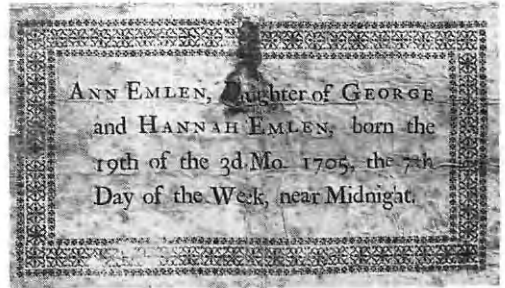 ANN EMLEN, Daughter of GEORGE
and HANNAH EMLEN, born the
19th of the 3d. Mo. 1705, the 7th
Day of the Week, near Midnight.